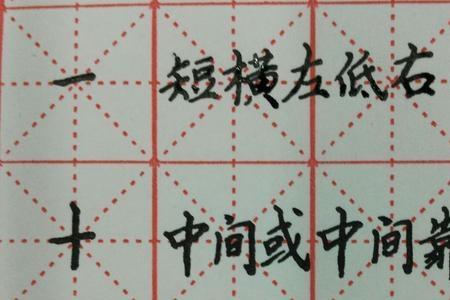 一 短横左低右
十 中间或中间靠